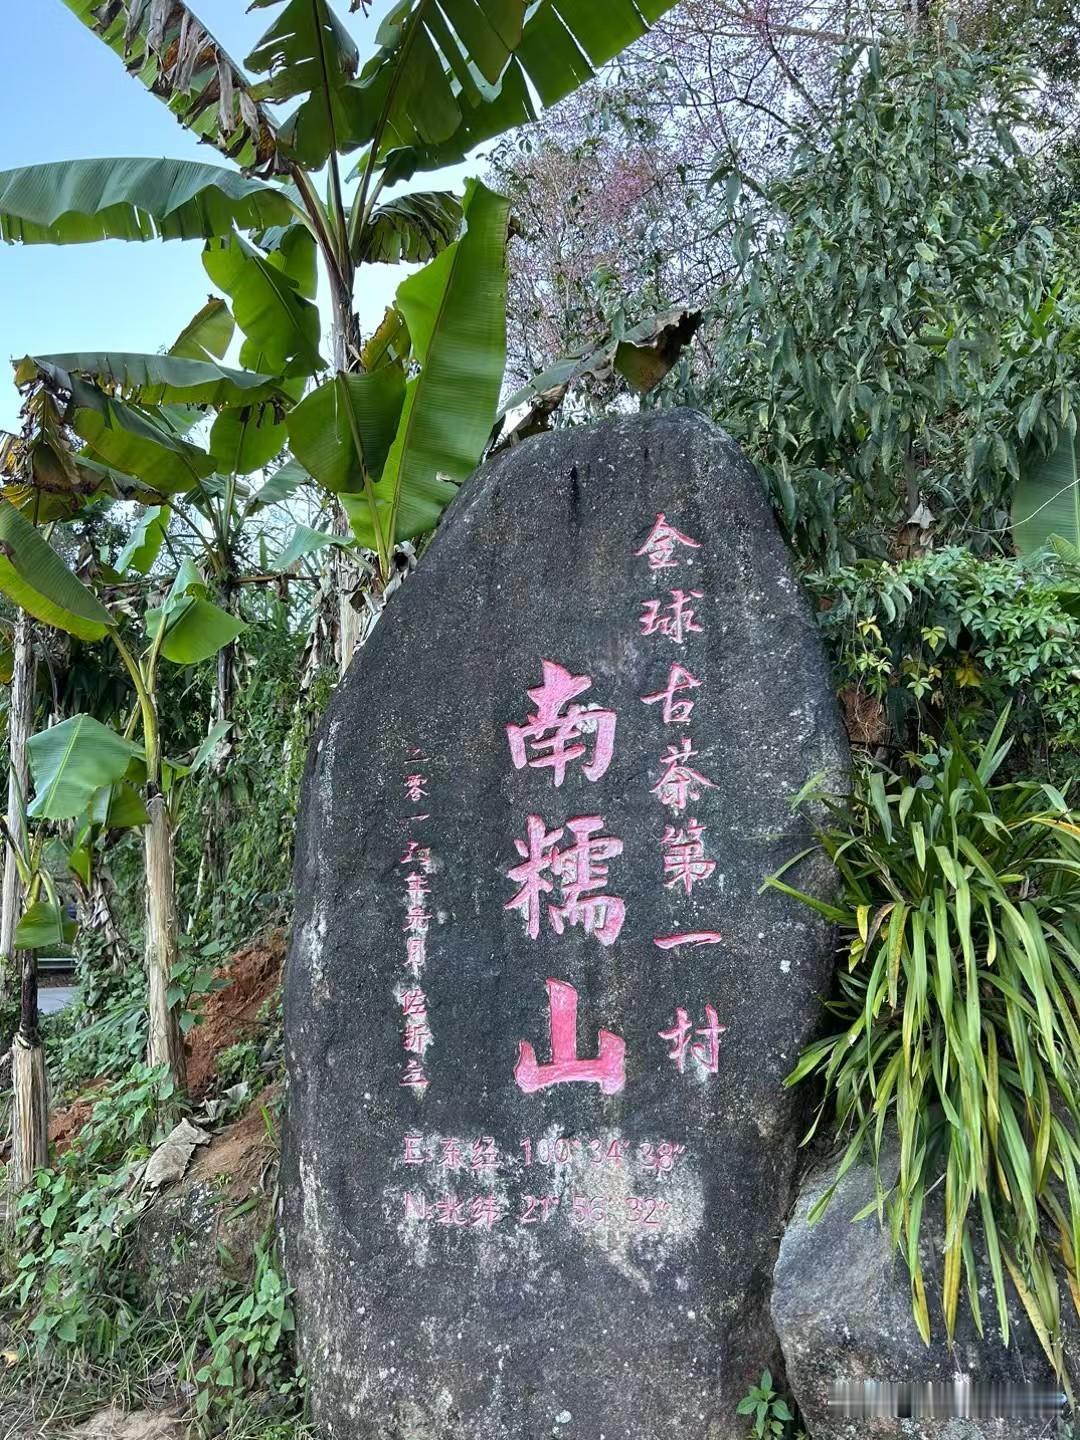 全球古茶第一村
南糯山
二零一五年元月佐折立
E.东经 100°34′38″
N.北纬 21°56′32″